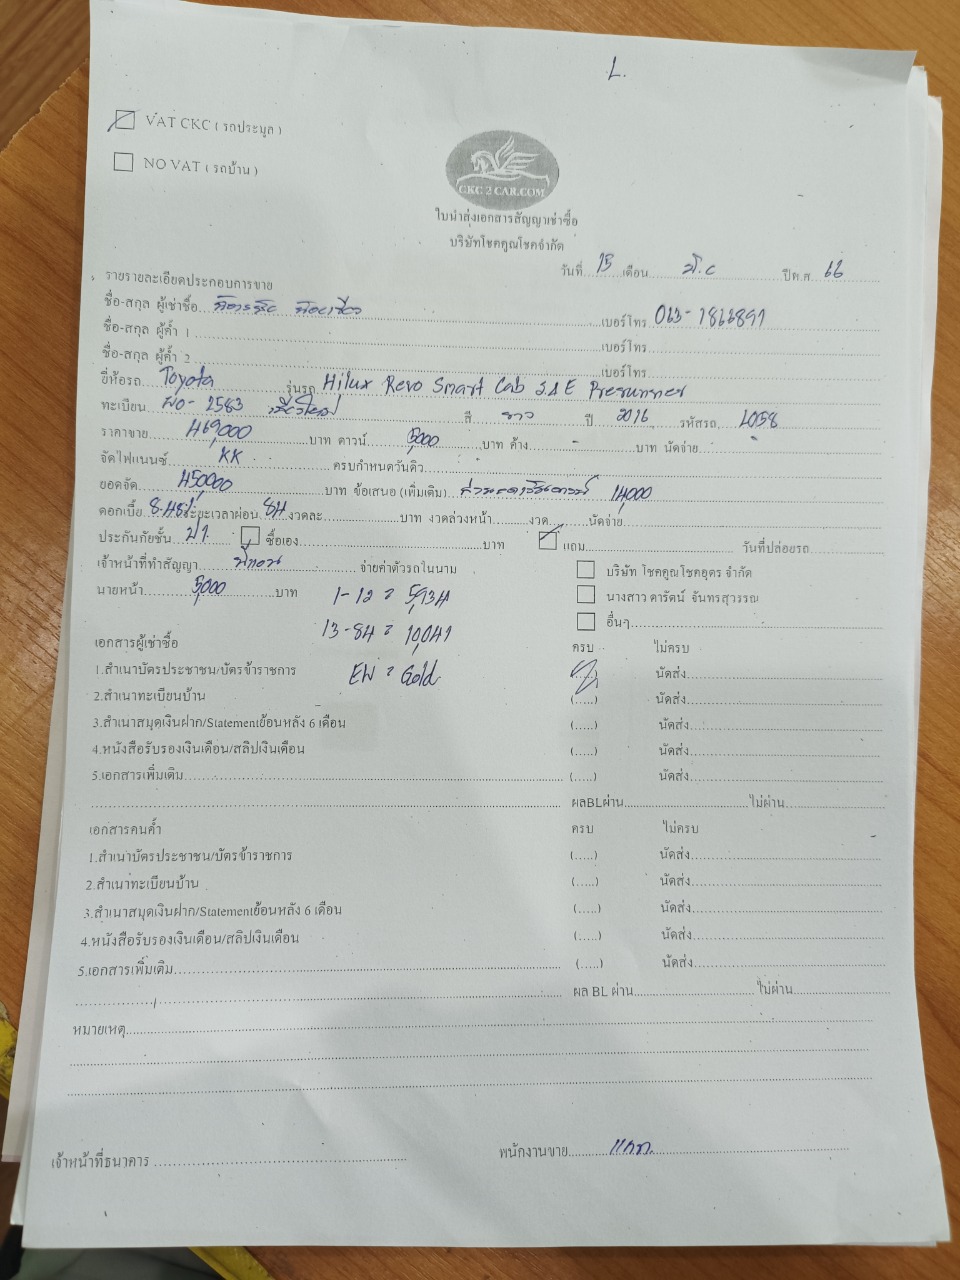 L.
VAT CKC ( รถประมูล )
NO VAT ( รถบ้าน )
CKC 2 CAR.COM
ใบนำส่งเอกสารสัญญาเช่าซื้อ
บริษัทโชคคูณโชคจำกัด
วันที่ 15 เดือน มี.ค ปีพ.ศ. 66
รายรายละเอียดประกอบการขาย
ชื่อ-สกุล ผู้เช่าซื้อ เบอร์โทร
ชื่อ-สกุล ผู้ค้ำ 1 เบอร์โทร
ชื่อ-สกุล ผู้ค้ำ 2 เบอร์โทร
ยี่ห้อรถ Toyota รุ่นรถ Hilux Revo Smart Cab 2.4 E Prerunner
ทะเบียน 2583 เชียงใหม่ สี ขาว ปี 2016 รหัสรถ L058
ราคาขาย 469,000 บาท ดาวน์ 5,000 บาท ค้าง - บาท นัดจ่าย -
จัดไฟแนนซ์ KK ครบกำหนดวันดิว
ยอดจัด 450,000 บาท ข้อเสนอ (เพิ่มเติม) ส่วนลดเงินดาวน์ 14,000
ดอกเบี้ย 8.45% ระยะเวลาผ่อน 84 งวดละ บาท งวดล่วงหน้า งวด นัดจ่าย
ประกันภัยชั้น ป1 ซื้อเอง บาท แถม วันที่ปล่อยรถ
เจ้าหน้าที่ทำสัญญา จ่ายค่าตัวรถในนาม
บริษัท โชคคูณโชคอุดร จำกัด
นายหน้า 5,000 บาท 1-12 = 5,934
นางสาว ดารัตน์ จันทรสุวรรณ
13-84 = 10,041
อื่นๆ
เอกสารผู้เช่าซื้อ ครบ ไม่ครบ
1.สำเนาบัตรประชาชน/บัตรข้าราชการ EW = Gold นัดส่ง
2.สำเนาทะเบียนบ้าน (.....) นัดส่ง
3.สำเนาสมุดเงินฝาก/Statementย้อนหลัง 6 เดือน (.....) นัดส่ง
4.หนังสือรับรองเงินเดือน/สลิปเงินเดือน (.....) นัดส่ง
5.เอกสารเพิ่มเติม (.....) นัดส่ง
ผลBLผ่าน ไม่ผ่าน
เอกสารคนค้ำ ครบ ไม่ครบ
1.สำเนาบัตรประชาชน/บัตรข้าราชการ (.....) นัดส่ง
2.สำเนาทะเบียนบ้าน (.....) นัดส่ง
3.สำเนาสมุดเงินฝาก/Statementย้อนหลัง 6 เดือน (.....) นัดส่ง
4.หนังสือรับรองเงินเดือน/สลิปเงินเดือน (.....) นัดส่ง
5.เอกสารเพิ่มเติม (.....) นัดส่ง
ผล BL ผ่าน ไม่ผ่าน
หมายเหตุ
เจ้าหน้าที่ธนาคาร พนักงานขาย